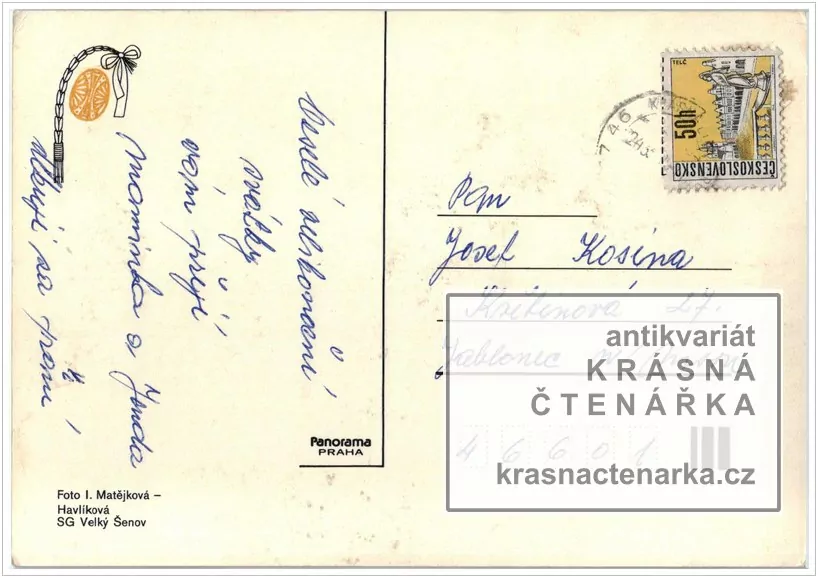 Veselé velikonoční
svátky
vám přeji
Maminka a Jenda
děkuji za přání
Panorama
PRAHA
Foto I. Matějková –
Havlíková
SG Velký Šenov
746
TELČ
50h
ČESKOSLOVENSKO
Pan
Josef Kosina
27.
Jablonec
46601
antikvariát
KRÁSNÁ
ČTENÁŘKA
krasnactenarka.cz